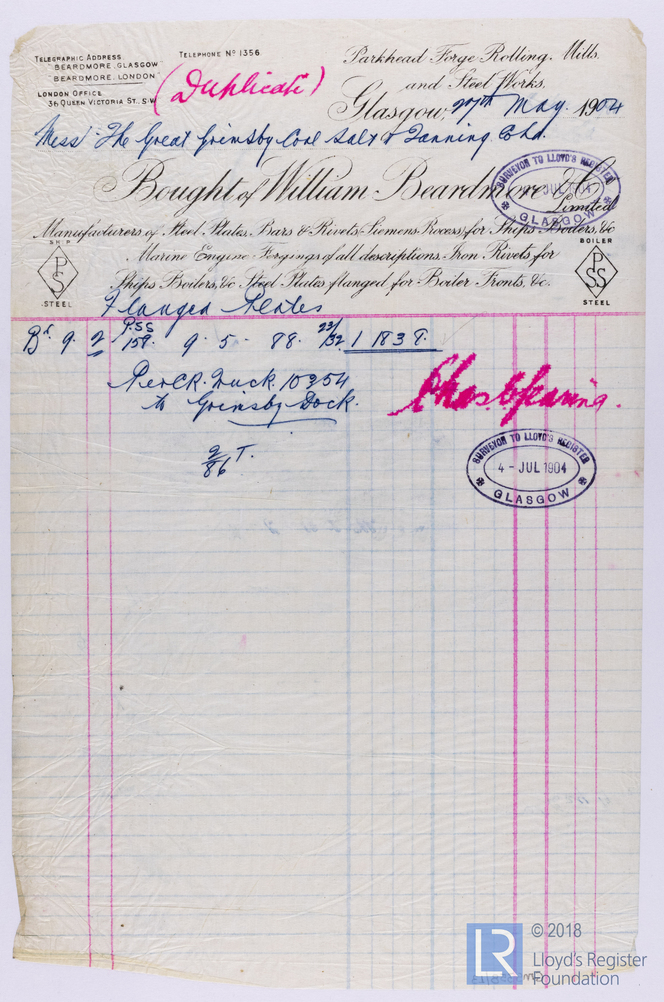 TELEGRAPHIC ADDRESS.
"BEARDMORE, GLASGOW"
"BEARDMORE, LONDON"
TELEPHONE No 1356.
LONDON OFFICE
36 QUEEN VICTORIA ST. S.W.
(Duplicate)
Parkhead Forge Rolling Mills.
and Steel Works,
Glasgow, 27th May 1904
Messrs The Great Grimsby Coal Salt & Tanning Co Ld.
Bought of William Beardmore & Co
Limited
SURVEYOR TO LLOYD'S REGISTER
JUL
GLASGOW
Manufacturers of Steel Plates, Bars & Rivets (Siemens Process) for Ships, Boilers, &c
Marine Engine Forgings of all descriptions. Iron Rivets for
Ships Boilers, &c. Steel Plates flanged for Boiler Fronts, &c.
SHIP
PSS
STEEL
BOILER
PSS
STEEL
Flanged Plates
9. 2 PSS 159. 9. 5. 88. 23/32 1 1839.
Per C.R. Truck 10354
to Grimsby Dock.
Chas. Spearing.
2/86 T.
SURVEYOR TO LLOYD'S REGISTER
4 - JUL 1904
GLASGOW
LR
© 2018
Lloyd's Register
Foundation